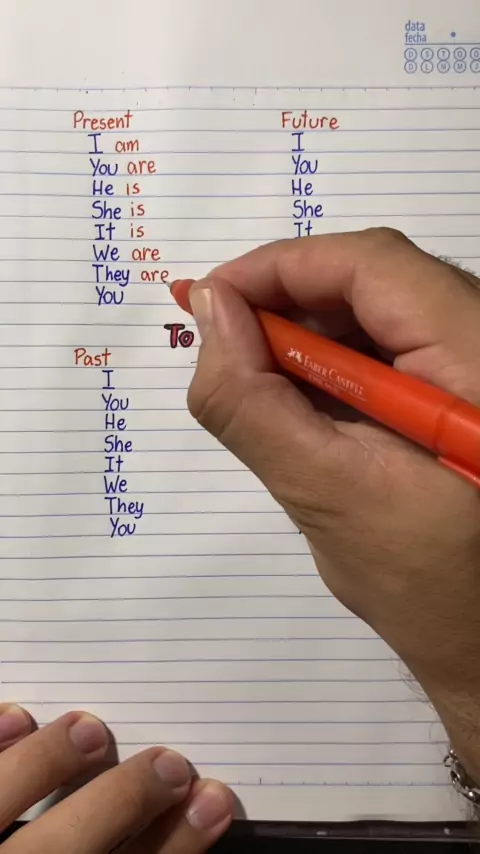 data
fecha
D S T Q Q
D L M M J
Present
I am
You are
He is
She is
It is
We are
They are
You
Future
I
You
He
She
It
To
Past
I
You
He
She
It
We
They
You
FABER CASTELL